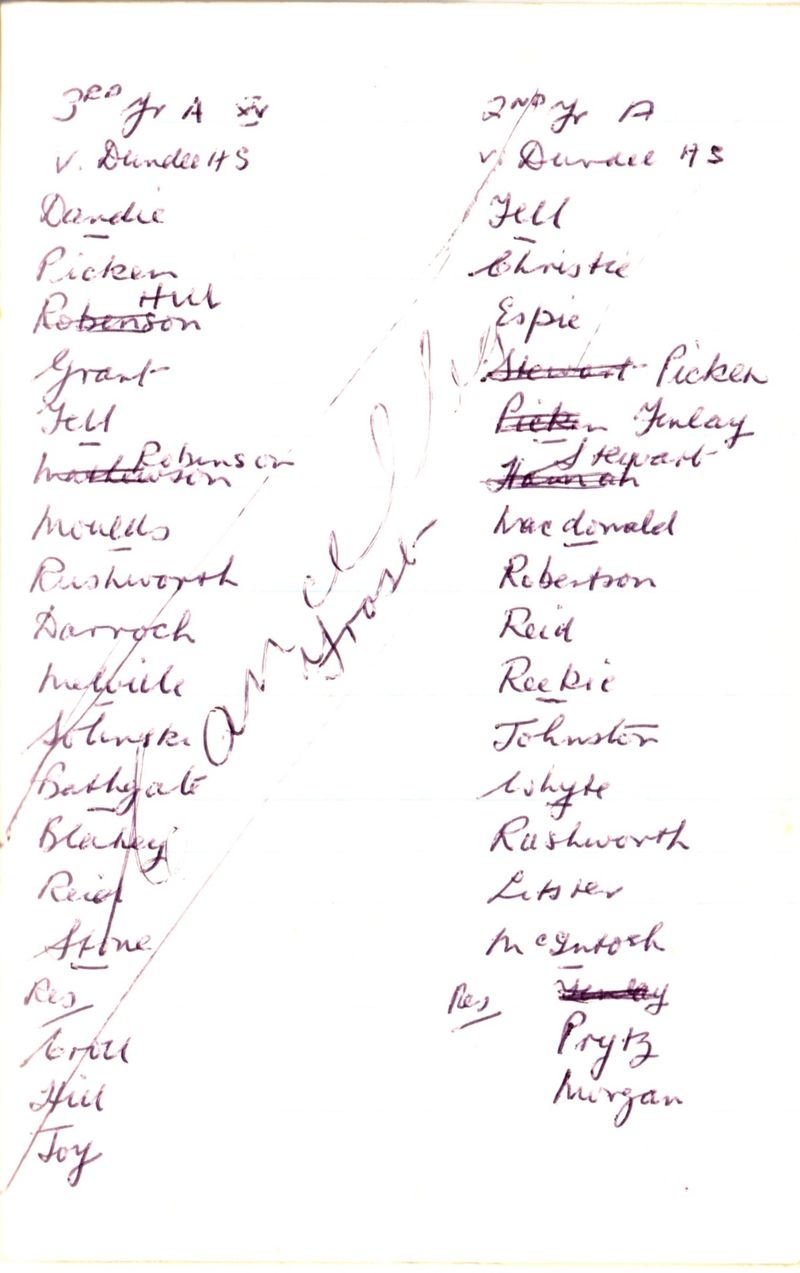 3RD Yr A XV
v. Dundee HS
Dandie
Picken
Robinson Hill
Grant
Fell
Mathewson Robinson
Moulds
Rushworth
Darroch
Melville
Solinski
Bathgate
Blakey
Reid
Stone
Res
Croll
Hill
Joy
Cancelled
Frost
2ND Yr A
v. Dundee HS
Fell
Christie
Espie
Stewart Picken
Picken Finlay
Hannah Stewart
Macdonald
Robertson
Reid
Reekie
Johnston
Whyte
Rushworth
Litster
McIntosh
Res Finlay
Prytz
Morgan